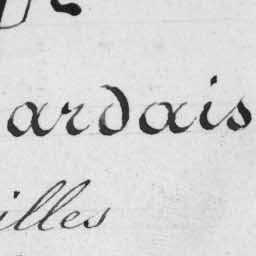 ardais
illes